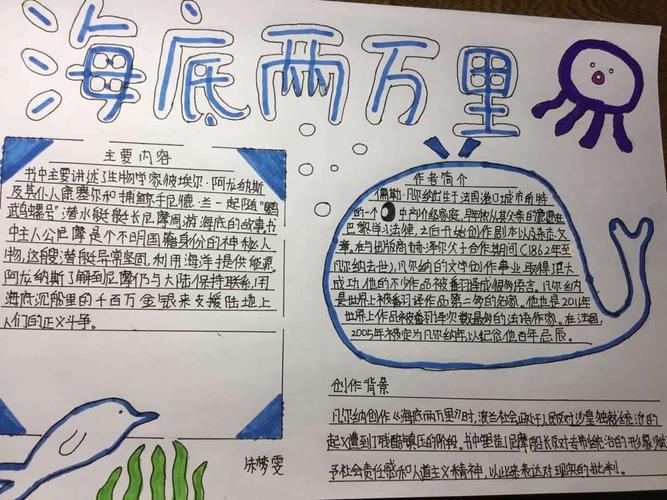 海底两万里
主要内容
书中主要讲述了生物学家彼埃尔·阿龙纳斯
及其仆人康塞尔和捕鲸手尼德·兰一起随"鹦
鹉螺号"潜水艇艇长尼摩周游海底的故事书
中主人公尼摩是个不明国籍身份的神秘人
物,这艘潜艇异常坚固,利用海洋提供能源,
阿龙纳斯了解到尼摩仍与大陆保持联系,用
海底沉船里的千百万金银来支援陆地上
人们的正义斗争。
朱梦雯
作者简介
儒勒·凡尔纳出生于法国港口城市南特
的一个中产阶级家庭,早年依从其父亲的意愿在
巴黎学习法律,之后开始创作剧本以及杂志文
章,在与出版商赫泽尔父子合作期间(1862年至
凡尔纳去世),凡尔纳的文学创作事业取得巨大
成功,他的不少作品被翻译成很多语言。凡尔纳
是世界上被翻译作品第二多的名家,他也是2011年
世界上作品被翻译次数最多的法语作家。在法国,
2005年被定为凡尔纳年,以纪念他百年忌辰。
创作背景
凡尔纳创作《海底两万里》时,波兰社会正处于人民反对沙皇独裁统治的
起义遭到了残酷镇压的阶段。书中塑造了尼摩船长反对专制统治的形象,赋
予社会责任感和人道主义精神,以此来表达对现实的批判。